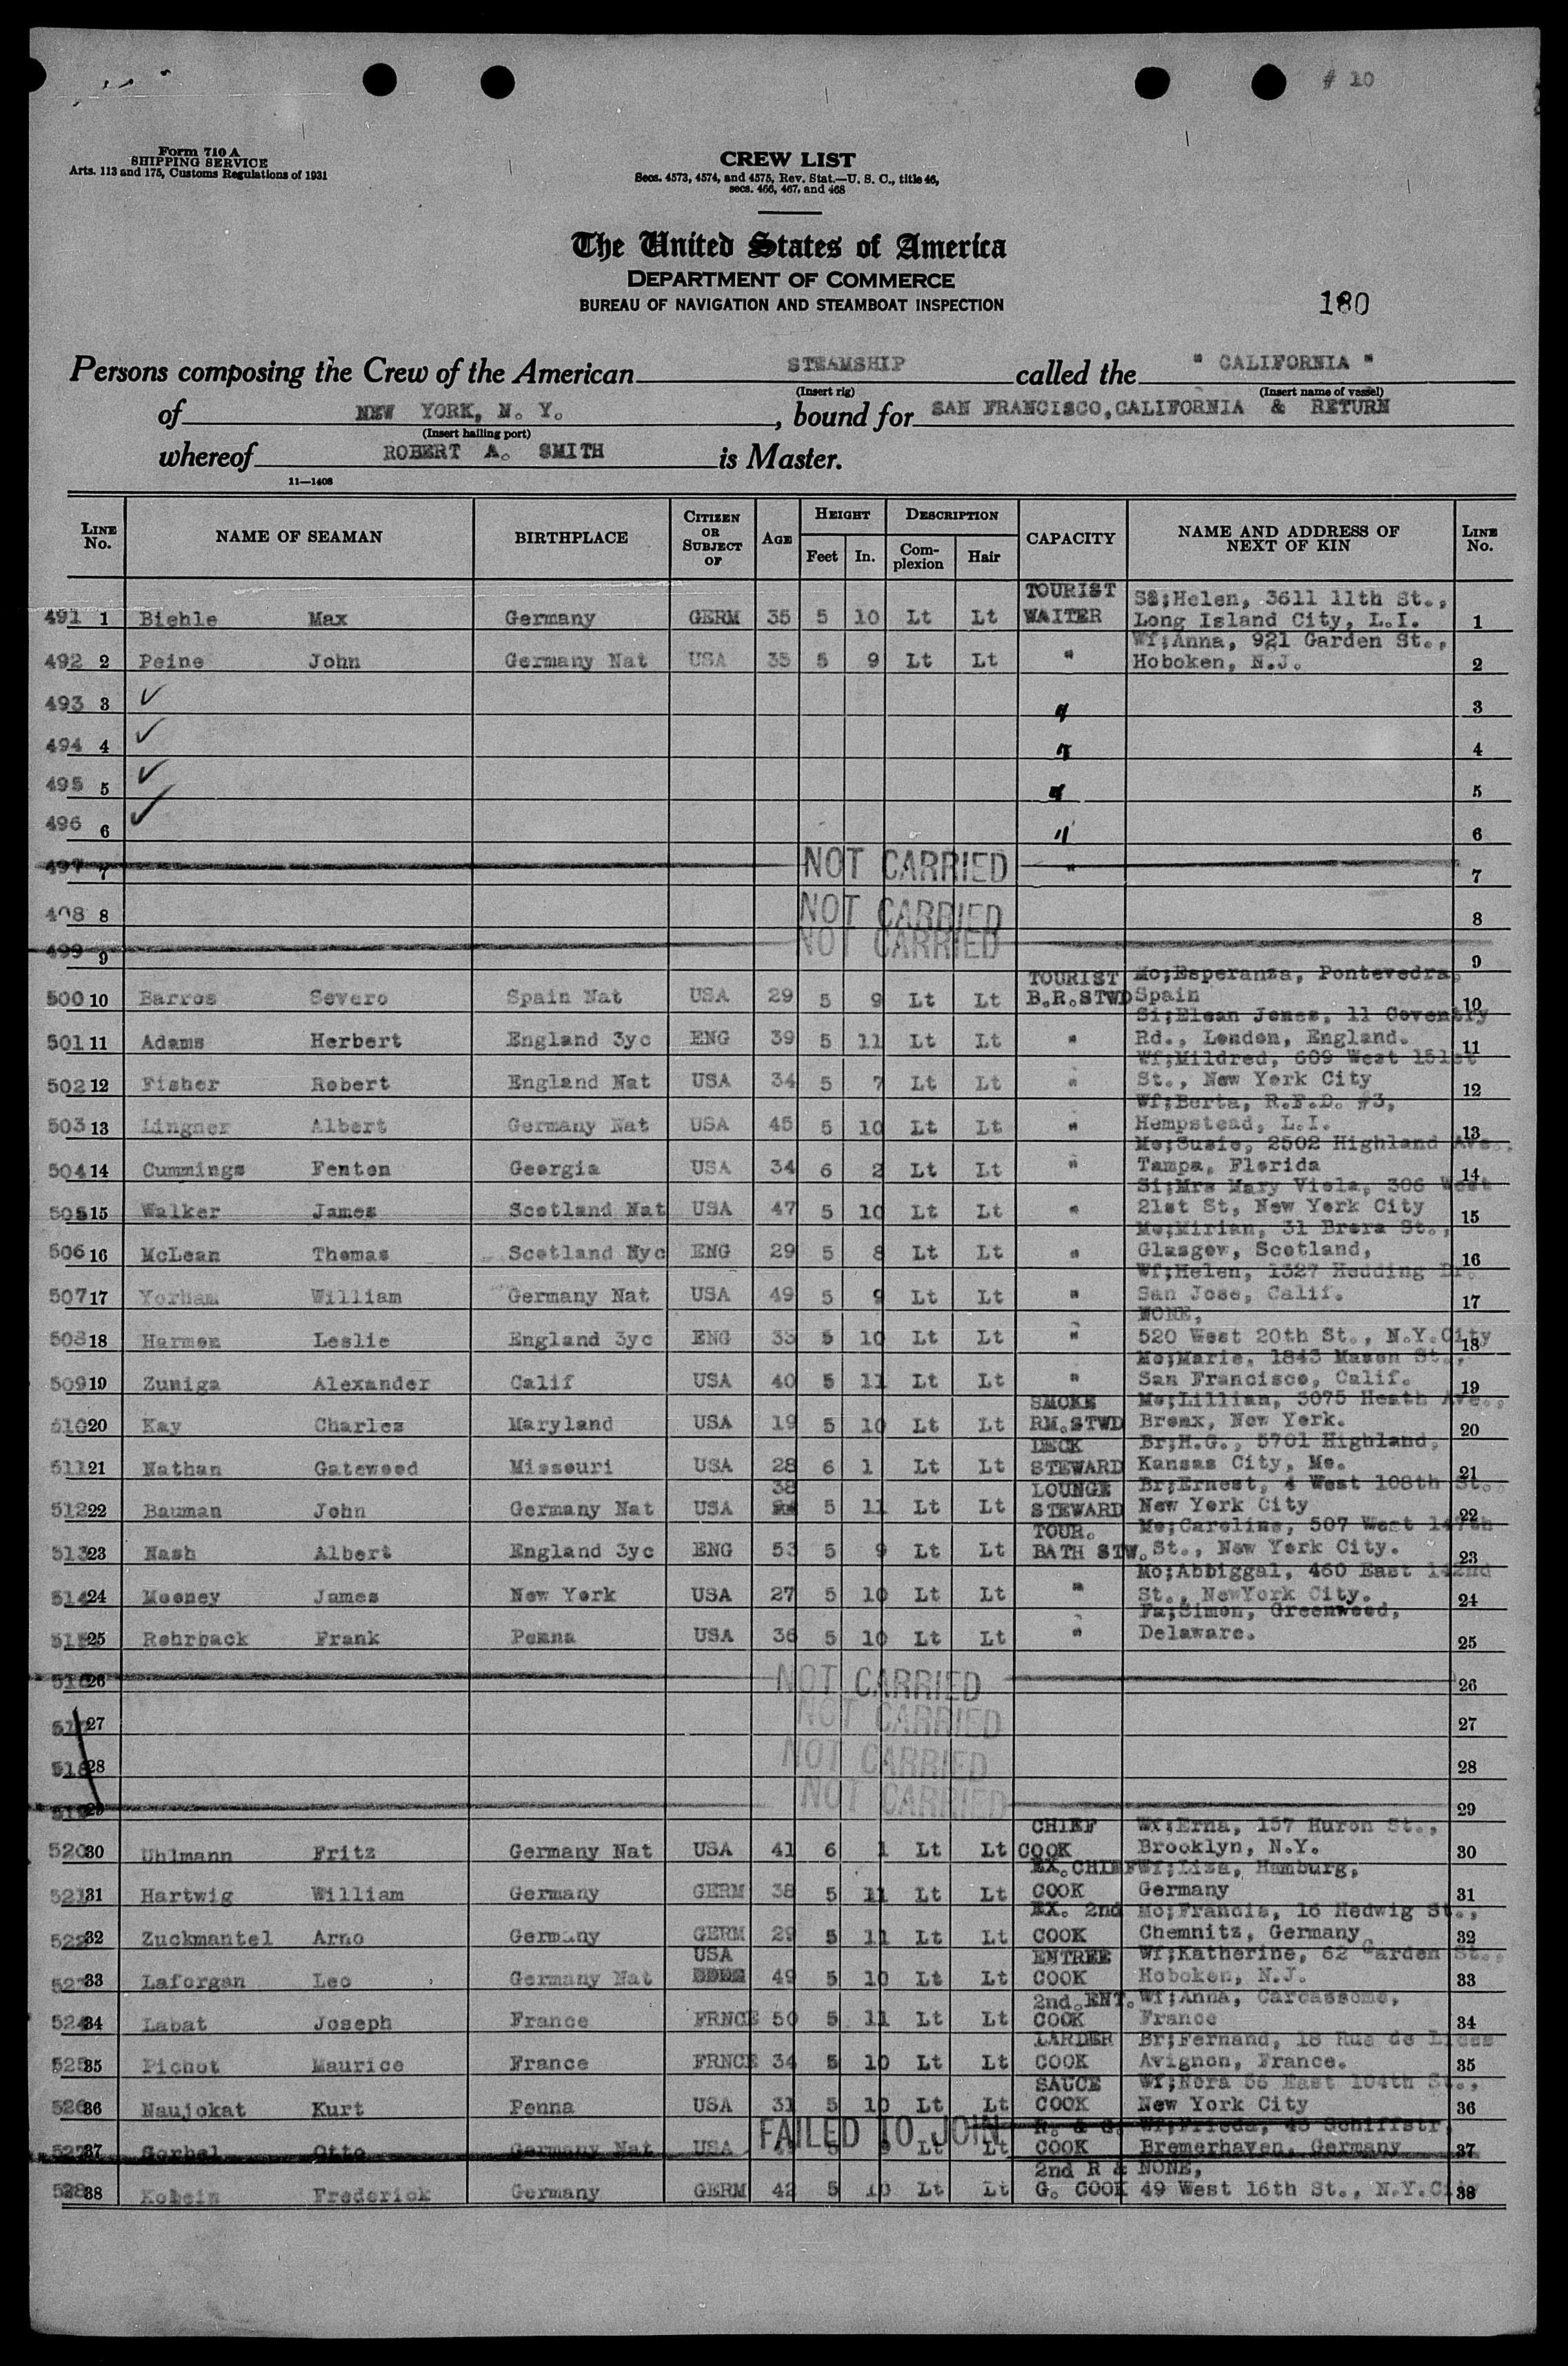 # 10
Form 710 A
SHIPPING SERVICE
Arts. 113 and 175, Customs Regulations of 1931
CREW LIST
Secs. 4573, 4574, and 4575, Rev. Stat.—U. S. C., title 46,
secs. 466, 467, and 468
The United States of America
DEPARTMENT OF COMMERCE
BUREAU OF NAVIGATION AND STEAMBOAT INSPECTION
180
Persons composing the Crew of the American STEAMSHIP called the " CALIFORNIA "
(Insert rig) (Insert name of vessel)
of NEW YORK, N. Y. , bound for SAN FRANCISCO, CALIFORNIA & RETURN
(Insert hailing port)
whereof ROBERT A. SMITH is Master.
11—1408
LINE No. NAME OF SEAMAN BIRTHPLACE CITIZEN OR SUBJECT OF AGE HEIGHT Feet In. DESCRIPTION Complexion Hair CAPACITY NAME AND ADDRESS OF NEXT OF KIN LINE No.
TOURIST Helen, 3611 11th St.,
491 1 Biehle Max Germany GERM 35 5 10 Lt Lt WAITER Long Island City, L.I. 1
Wf;Anna, 921 Garden St.,
492 2 Peine John Germany Nat USA 35 5 9 Lt Lt " Hoboken, N.J. 2
493 3 ✓ " 3
494 4 ✓ " 4
495 5 ✓ " 5
496 6 ✓ " 6
497 7 NOT CARRIED " 7
498 8 NOT CARRIED 8
499 9 NOT CARRIED 9
TOURIST Mo;Esperanza, Pontevedra,
500 10 Barros Severo Spain Nat USA 29 5 9 Lt Lt B.R.STWD Spain 10
Si;Elean Jones, 11 Coventry
501 11 Adams Herbert England 3yc ENG 39 5 11 Lt Lt " Rd., London, England. 11
Wf;Mildred, 609 West 151st
502 12 Fisher Robert England Nat USA 34 5 7 Lt Lt " St., New York City 12
Wf;Berta, R.F.D. #3,
503 13 Lingner Albert Germany Nat USA 45 5 10 Lt Lt " Hempstead, L.I. 13
Mo;Susie, 2502 Highland Ave.,
504 14 Cummings Fenton Georgia USA 34 6 2 Lt Lt " Tampa, Florida 14
Si;Mrs Mary Viola, 306 West
505 15 Walker James Scotland Nat USA 47 5 10 Lt Lt " 21st St, New York City 15
Mo;Mirian, 31 Brora St.,
506 16 McLean Thomas Scotland Nyc ENG 29 5 8 Lt Lt " Glasgow, Scotland, 16
Wf;Helen, 1327 Hedding Dr.
507 17 Yorham William Germany Nat USA 49 5 9 Lt Lt " San Jose, Calif. 17
NONE,
508 18 Harmon Leslie England 3yc ENG 33 5 10 Lt Lt " 520 West 20th St., N.Y.City 18
Mo;Marie, 1843 Mason St.,
509 19 Zuniga Alexander Calif USA 40 5 11 Lt Lt " San Francisco, Calif. 19
SMOKE Mo;Lillian, 3075 Heath Ave.,
510 20 Kay Charles Maryland USA 19 5 10 Lt Lt RM.STWD Bronx, New York. 20
DECK Br;H.G., 5701 Highland,
511 21 Nathan Gatewood Missouri USA 28 6 1 Lt Lt STEWARD Kansas City, Mo. 21
38 LOUNGE Br;Ernest, 4 West 108th St.,
512 22 Bauman John Germany Nat USA 5 11 Lt Lt STEWARD New York City 22
TOUR. Mo;Caroline, 507 West 147th
513 23 Nash Albert England 3yc ENG 53 5 9 Lt Lt BATH STW. St., New York City. 23
Mo;Abbiggal, 460 East 142nd
514 24 Mooney James New York USA 27 5 10 Lt Lt " St., NewYork City. 24
Fa;Simon, Greenwood,
515 25 Rohrback Frank Penna USA 36 5 10 Lt Lt " Delaware. 25
516 26 NOT CARRIED 26
517 27 NOT CARRIED 27
518 28 NOT CARRIED 28
519 29 NOT CARRIED 29
CHIEF Wf;Erna, 157 Huron St.,
520 30 Uhlmann Fritz Germany Nat USA 41 6 1 Lt Lt COOK Brooklyn, N.Y. 30
EX.CHIEF Wf;Liza, Hamburg,
521 31 Hartwig William Germany GERM 38 5 11 Lt Lt COOK Germany 31
EX. 2nd Mo;Francis, 16 Hedwig St.,
522 32 Zuckmantel Arno Germany GERM 29 5 11 Lt Lt COOK Chemnitz, Germany 32
USA ENTREE Wf;Katherine, 62 Garden St.,
523 33 Laforgan Leo Germany Nat 49 5 10 Lt Lt COOK Hoboken, N.J. 33
2nd.ENT. Wf;Anna, Carcassome,
524 34 Labat Joseph France FRNCE 50 5 11 Lt Lt COOK France 34
LARDER Br;Fernand, 18 Rue de
525 35 Pichot Maurice France FRNCE 34 5 10 Lt Lt COOK Avignon, France. 35
SAUCE Wf;Nora 56 East 104th St.,
526 36 Naujokat Kurt Penna USA 31 5 10 Lt Lt COOK New York City 36
FAILED TO JOIN R. & G. Wf;Frieda, 43 Schiffstr,
527 37 Gorbel Otto Germany Nat USA 5 9 Lt Lt COOK Bremerhaven, Germany 37
2nd R & NONE,
528 38 Kobein Frederick Germany GERM 42 5 10 Lt Lt G. COOK 49 West 16th St., N.Y.City 38